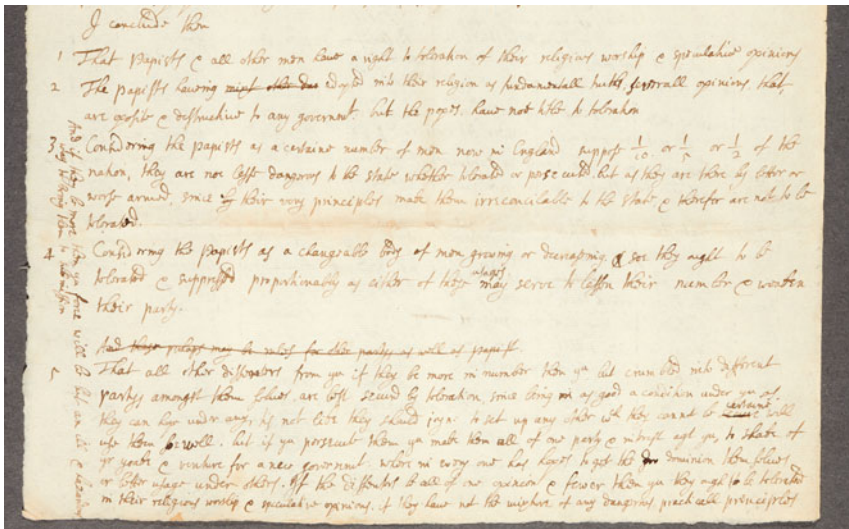 I conclude then
1 That Papists & all other men have a right to toleration of their religious worship & speculative opinions
2 The papists haveing mixt other doe adopted into their religion as fundamentall truths, severall opinions, that
are oposite & destructive to any government but the popes, have noe title to toleration
3 Considering the papists as a certaine number of men now in England suppose 1/10 or 1/5 or 1/2 of the
nation, they are not lesse dangerous to the state whether tolerated or persecuted. but as they are there by better or
worse armed, since by their very principles make them irreconcilable to the state & therefor are not to be
tolerated.
4 Considering the Papists as a changeable body of men growing or decreasing, & soe they ought to be
tolerated & suppressed proportionably as either of those usages may serve to lessen their number & weaken
their party.
And these rules may be rules for other partys as well as papist
5 That all other dissenters from yu if they be more in number then yu but crumbled into different
partys amongst them selves, are best secured by toleration, since being in as good a condition under yu as
they can hope under any, tis not like they should joyn to set up any other wh they cannot be certaine will
use them soe well. but if yu persecute them yu make them all of one party & interest agt yu, to shake of
yr yoake & venture for a new government. wherein every one has hopes to get the dominion them selves
or better usage under others. If the dissenters be all of one opinion & fewer then yu they ought to be tolerated
in their religious worship & speculative opinions, if they have not the mixture of any dangerous practicall principles
And if they be more then yu force will be but an ill & hazardous
way to bring them to submission